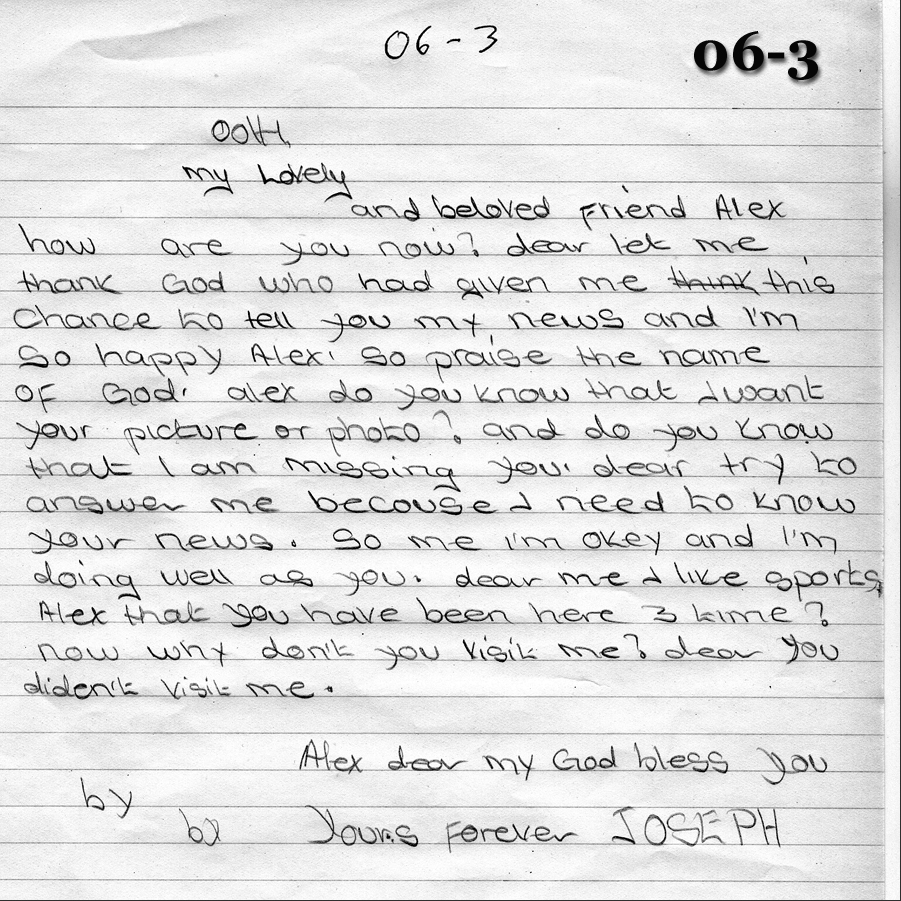 06-3
06-3
OOH,
my Lovely
and beloved friend Alex
how are you now? dear let me
thank God who had given me think this
Chance to tell you my news and I'm
So happy Alex. So praise the name
OF God. alex do you know that I want
your picture or photo? and do you know
that I am missing you. dear try to
answer me becouse I need to know
your news. So me I'm okey and I'm
doing well as you. dear me I like sports,
Alex that you have been here 3 time?
now why don't you visit me? dear you
diden't visit me.
Alex dear my God bless you
by
by Yours Forever JOSEPH